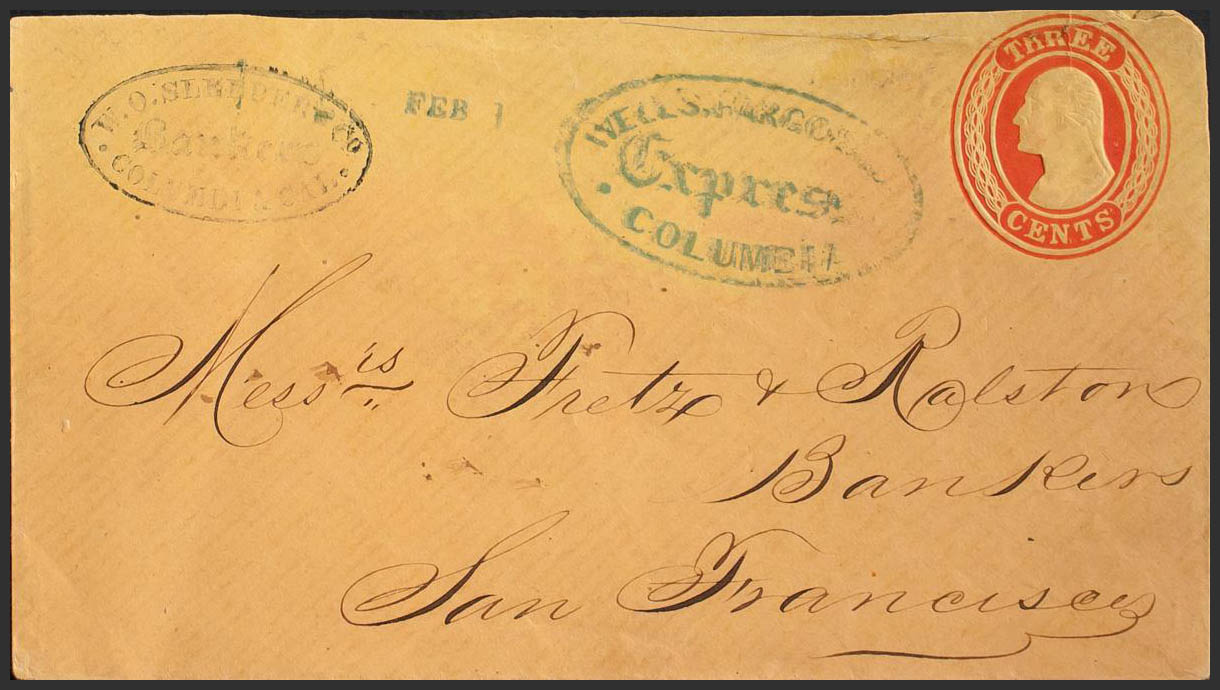 W.O. SLEEPER & CO.
Bankers
COLUMBIA CAL.
FEB 1
WELLS, FARGO &
Express
COLUMBIA
THREE
CENTS
Messrs Fretz & Ralston
Bankers
San Francisco